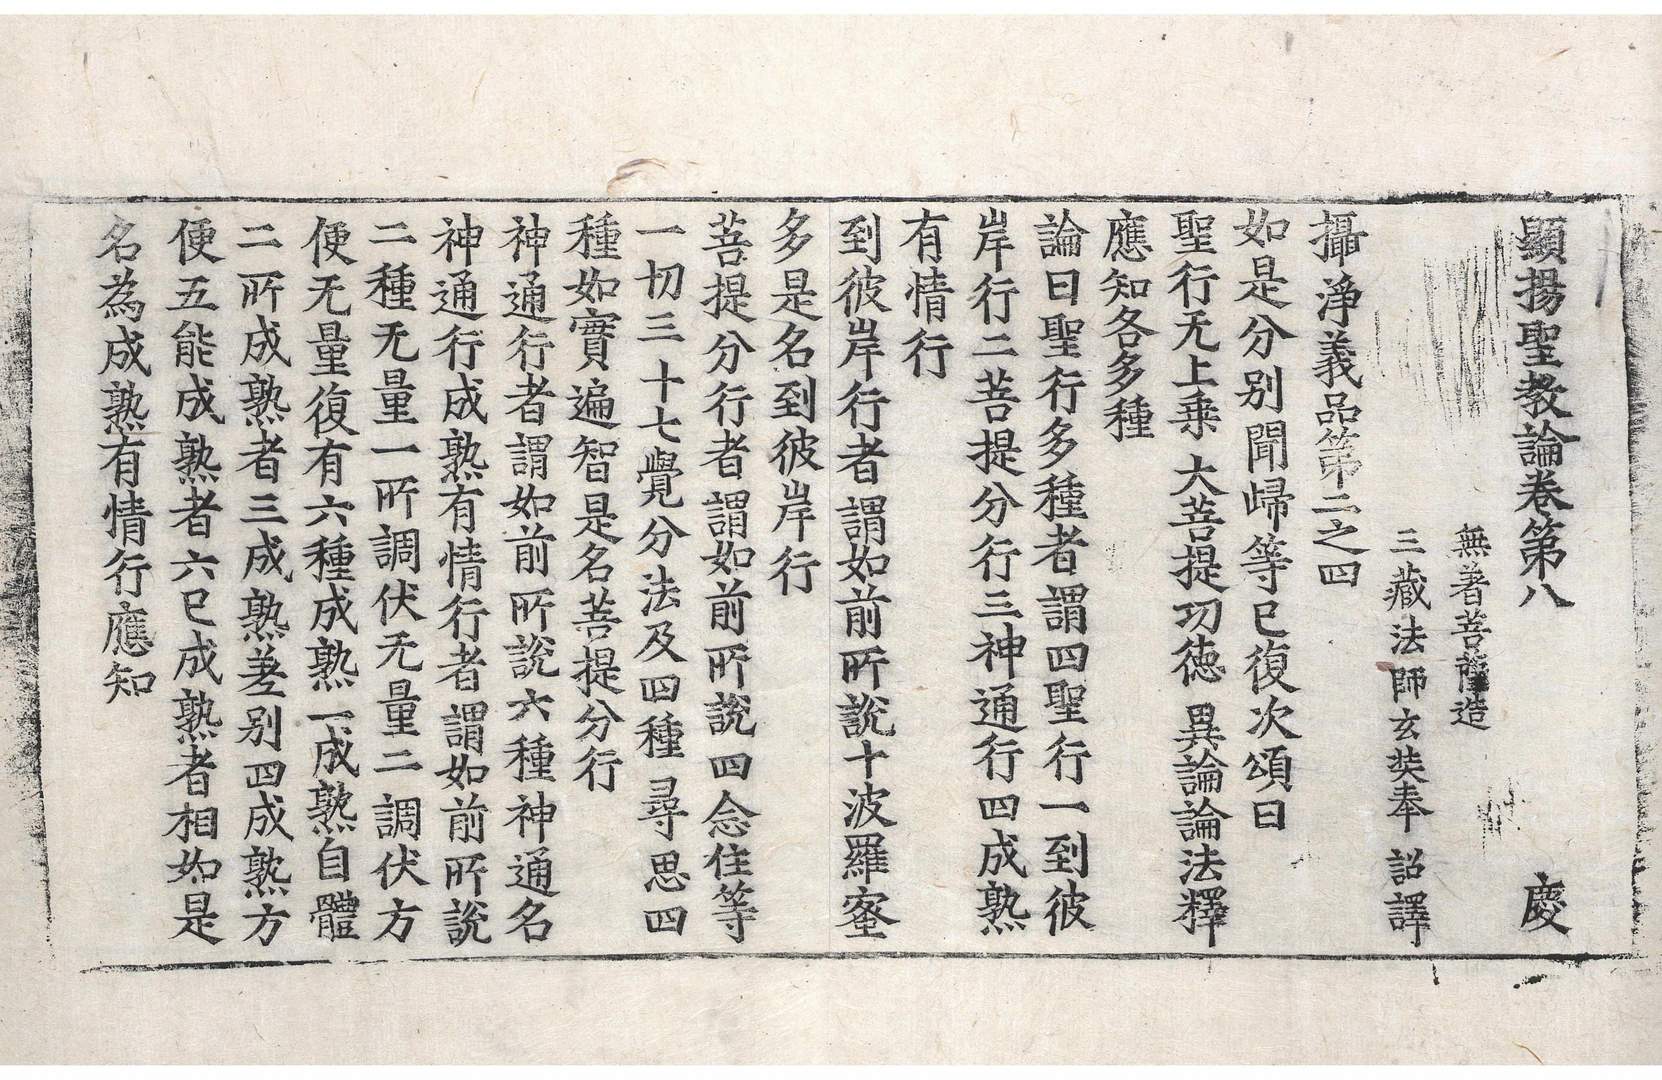 顯揚聖教論卷第八 慶
無著菩薩造
三藏法師玄奘奉 詔譯
攝淨義品第二之四
如是分别聞歸等已復次頌曰
聖行无上乗 大菩提功徳 異論論法釋
應知各多種
論曰聖行多種者謂四聖行一到彼
岸行二菩提分行三神通行四成熟
有情行
到彼岸行者謂如前所說十波羅蜜
多是名到彼岸行
菩提分行者謂如前所說四念住等
一切三十七覺分法及四種尋思四
種如實遍智是名菩提分行
神通行者謂如前所說六種神通名
神通行成熟有情行者謂如前所說
二種无量一所調伏无量二調伏方
便无量復有六種成熟一成熟自體
二所成熟者三成熟差别四成熟方
便五能成熟者六已成熟者相如是
名為成熟有情行應知